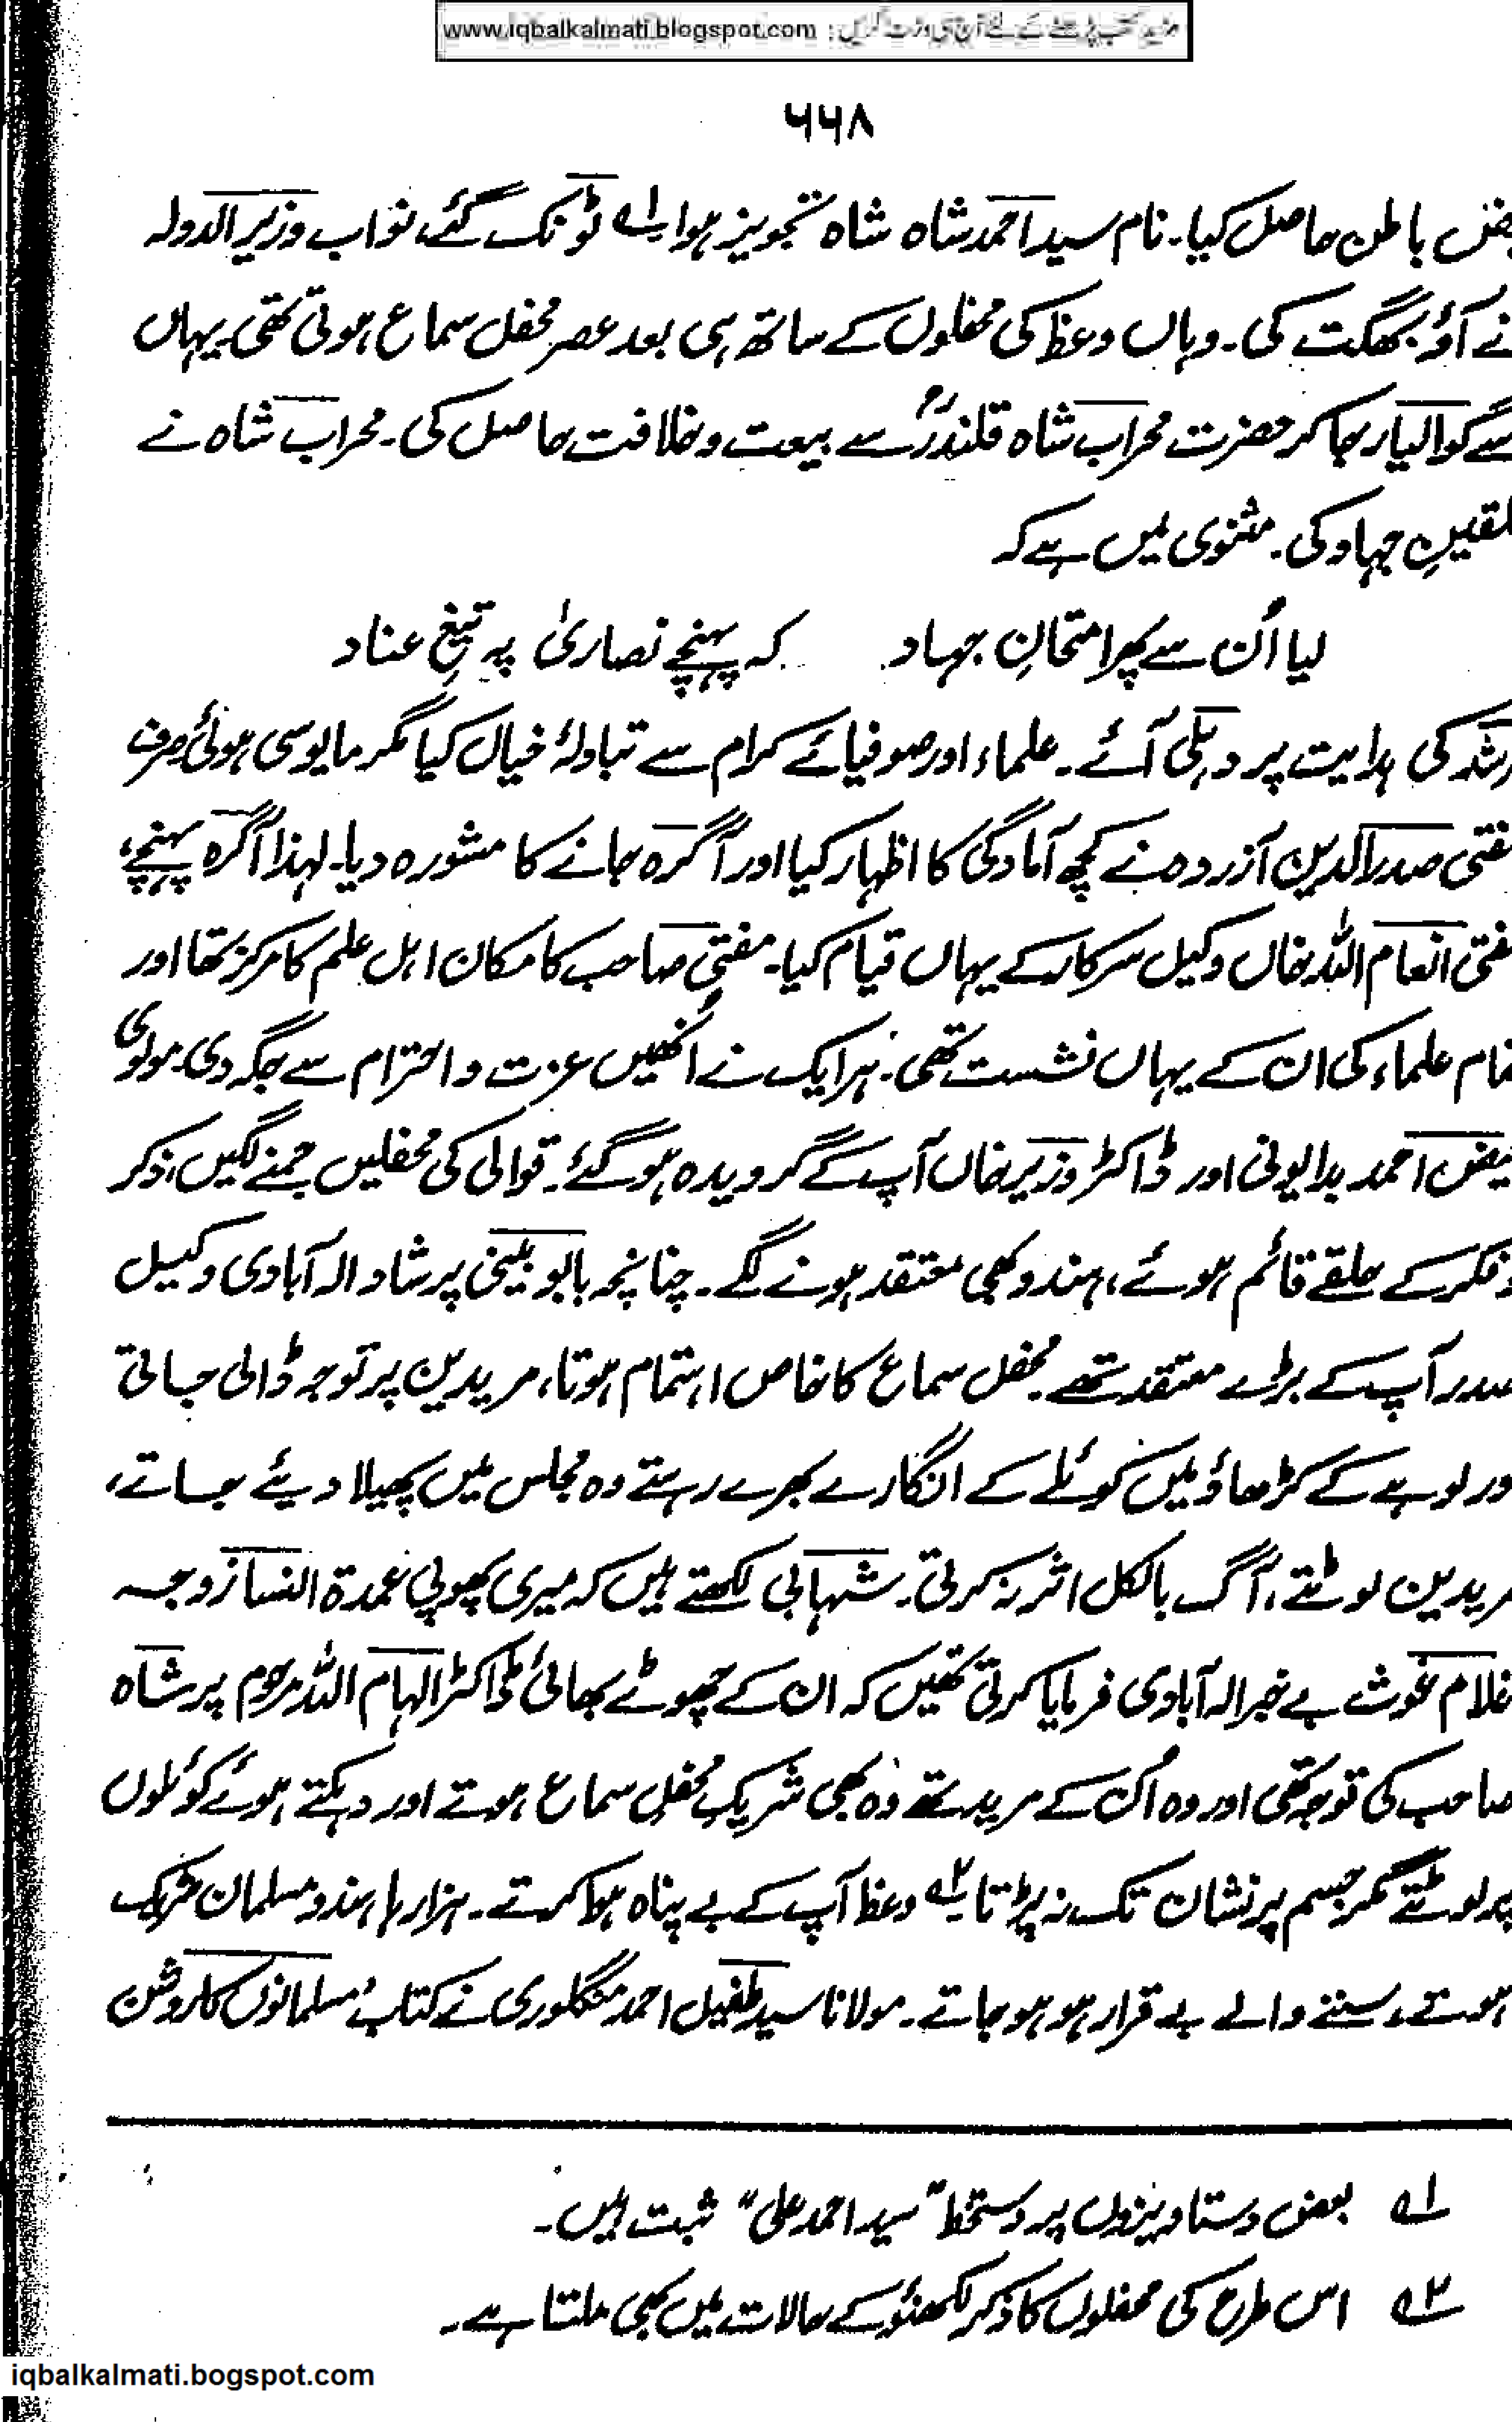 مزید کتب پڑھنے کے لئے آج ہی وزٹ کریں : www.iqbalkalmati.blogspot.com
۶۶۸
یض باطن حاصل کیا۔ نام سید احمد شاہ شاہ تجویز ہوا۔؎۱ ٹونک گئے، نواب وزیر الدولہ
نے آؤ بھگت کی۔ وہاں وعظ کی محفلوں کے ساتھ ہی بعد عصر محفل سماع ہوتی تھی۔ یہاں
سے گوالیار جا کر حضرت محراب شاہ قلندرؒ سے بیعت و خلافت حاصل کی۔ محراب شاہ نے
لقینِ جہاد کی۔ مثنوی میں ہے کہ
لیا اُن سے پھر امتحانِ جہاد کہ پہنچے نصاریٰ پہ تیغِ عناد
رشد کی ہدایت پر دہلی آئے۔ علماء اور صوفیائے کرام سے تبادلۂ خیال کیا مگر مایوسی ہوئی صرف
فتی صدر الدین آزردہ نے کچھ آمادگی کا اظہار کیا اور آگرہ جانے کا مشورہ دیا۔ لہذا آگرہ پہنچے،
فتی انعام اللہ خاں وکیل سرکار کے یہاں قیام کیا۔ مفتی صاحب کا مکان اہل علم کا مرکز تھا اور
تمام علماء کی ان کے یہاں نشست تھی۔ ہر ایک نے اُنھیں عزت و احترام سے جگہ دی۔ مولوی
فیض احمد بدایونی اور ڈاکٹر وزیر خاں آپ کے گرویدہ ہو گئے۔ قوالی کی محفلیں جمنے لگیں، ذکر
و فکر کے حلقے قائم ہوئے، ہندو بھی معتقد ہونے لگے۔ چنانچہ بابو بینی پرشاد الہ آبادی وکیل
صدر آپ کے بڑے معتقد تھے۔ محفل سماع کا خاص اہتمام ہوتا، مریدین پر توجہ ڈالی جاتی
ور لوہے کے کڑھاؤ میں کوئلے کے انگارے بھرے رہتے وہ مجلس میں پھیلا دیئے جاتے،
مریدین لوٹتے، آگ بالکل اثر نہ کرتی۔ شہابی لکھتے ہیں کہ میری پھوپی عمدۃ النسا زوجہ
غلام غوث بے خبر الہ آبادی فرمایا کرتی تھیں کہ ان کے چھوٹے بھائی ڈاکٹر الہام اللہ مرحوم پر شاہ
صاحب کی توجہ تھی اور وہ اُن کے مرید تھے وہ بھی شریکِ محفل سماع ہوتے اور دہکتے ہوئے کوئلوں
پر لوٹتے مگر جسم پر نشان تک نہ پڑتا۔؎۲ وعظ آپ کے بے پناہ ہوا کرتے۔ ہزارہا ہندو مسلمان شریک
ہوتے، سننے والے بے قرار ہو ہو جاتے۔ مولانا سید طفیل احمد منگلوری نے کتاب مسلمانوں کا روشن
؎۱ بعض دستاویزوں پر دستخط "سید احمد علی" ثبت ہیں۔
؎۲ اس طرح کی محفلوں کا ذکر لکھنؤ کے حالات میں بھی ملتا ہے۔
iqbalkalmati.bogspot.com